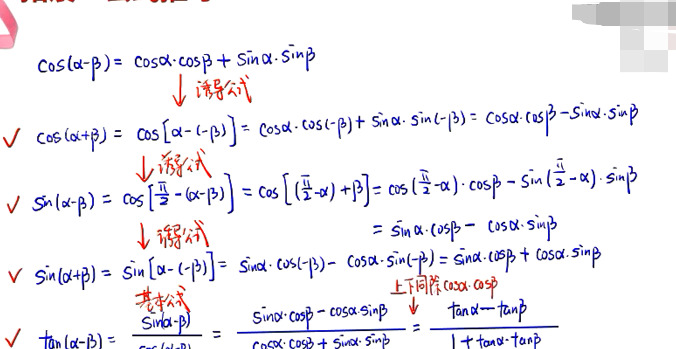 cos(α-β) = cosα·cosβ + sinα·sinβ
↓ 诱导公式
✓ cos(α+β) = cos[α-(-β)] = cosα·cos(-β) + sinα·sin(-β) = cosα·cosβ - sinα·sinβ
↓ 诱导公式
✓ sin(α-β) = cos[π/2-(α-β)] = cos[(π/2-α)+β] = cos(π/2-α)·cosβ - sin(π/2-α)·sinβ
= sinα·cosβ - cosα·sinβ
↓ 诱导公式
✓ sin(α+β) = sin[α-(-β)] = sinα·cos(-β) - cosα·sin(-β) = sinα·cosβ + cosα·sinβ
基本公式 上下同除cosα·cosβ
✓ tan(α-β) = sin(α-β)/cos(α-β) = (sinα·cosβ - cosα·sinβ)/(cosα·cosβ + sinα·sinβ) = (tanα - tanβ)/(1 + tanα·tanβ)